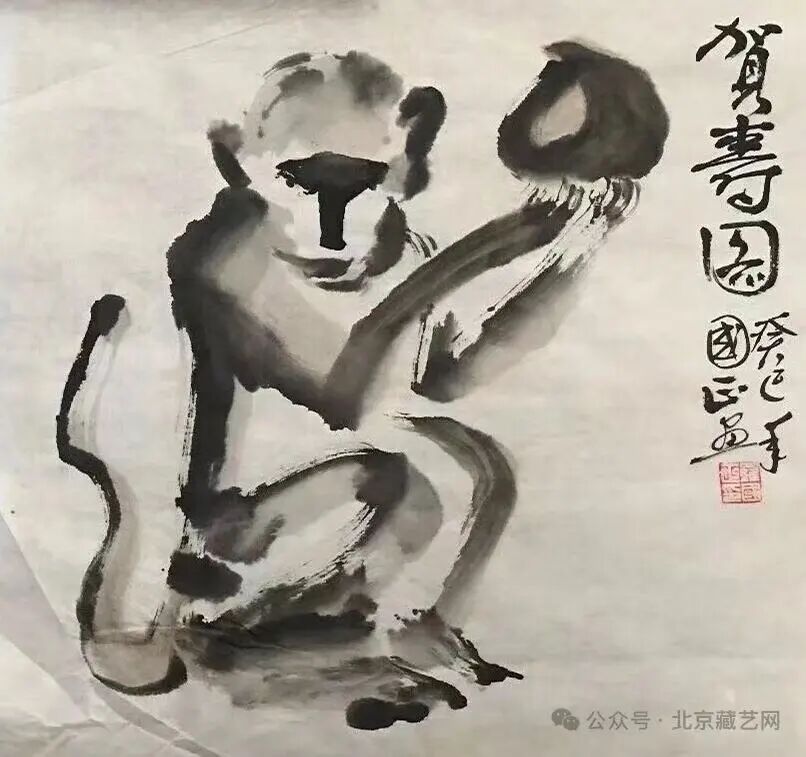 贺寿图
癸巳年
國正画
公众号·北京藏艺网